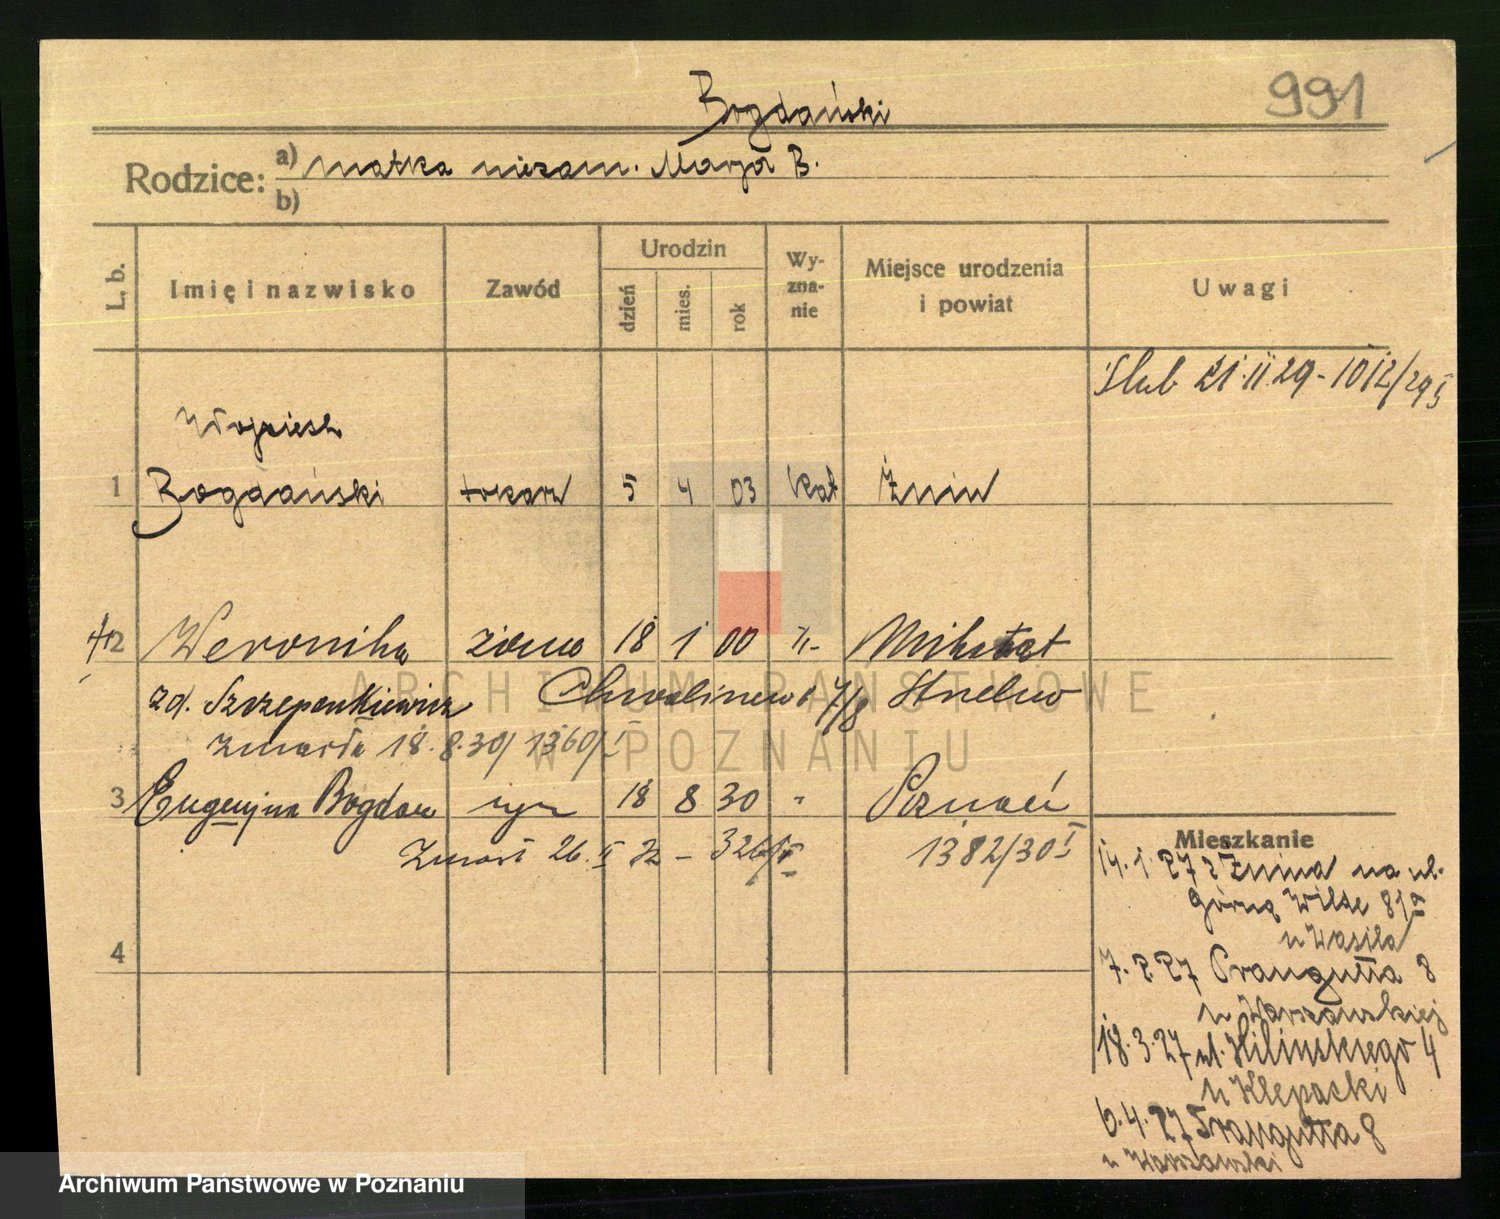 Bogdański
991
Rodzice: a) matka niezam. Marja B.
b)
L. b.
Imię i nazwisko
Zawód
Urodzin
dzień
mies.
rok
Wy-
zna-
nie
Miejsce urodzenia
i powiat
Uwagi
Ślub 21.II.29 - 1012/29
Wojciech
1 Bogdański tokarz 5 4 03 kat Żnin
2 Weronika żona 18 1 00 "- Mikstat
zd. Szczepankiewicz
zmarła 18.8.30/ 1360/I
ARCHIWUM PAŃSTWOWE
W POZNANIU
3 Eugenjusz Bogdan syn 18 8 30 " Poznań
Zmarł 26. II 32 - 326/II
1382/30 I
4
Mieszkanie
14.1.27 z Żnina na ul.
Górną Wildę 81a
u Wasila
7.2.27 Traugutta 8
u Warszawskiej
18.3.27 ul. Kilińskiego 4
u Klepacki
6.4.27 Traugutta 8
u Warszawski
Archiwum Państwowe w Poznaniu